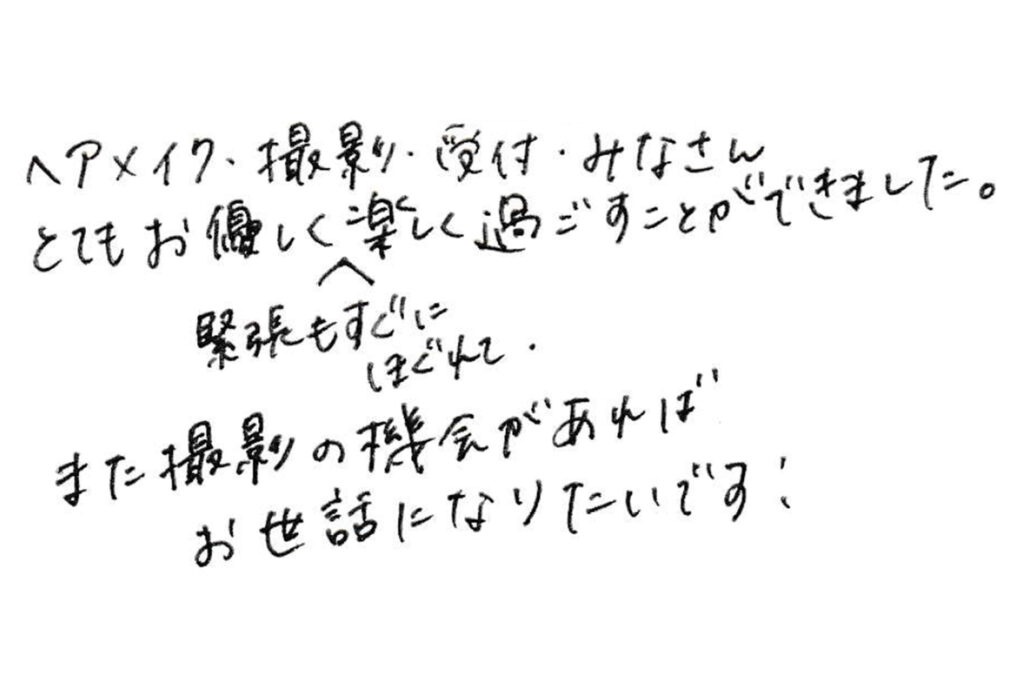 ヘアメイク・撮影・受付・みなさん
とてもお優しく楽しく過ごすことができました。
緊張もすぐに
ほぐれて.
また撮影の機会があれば
お世話になりたいです!